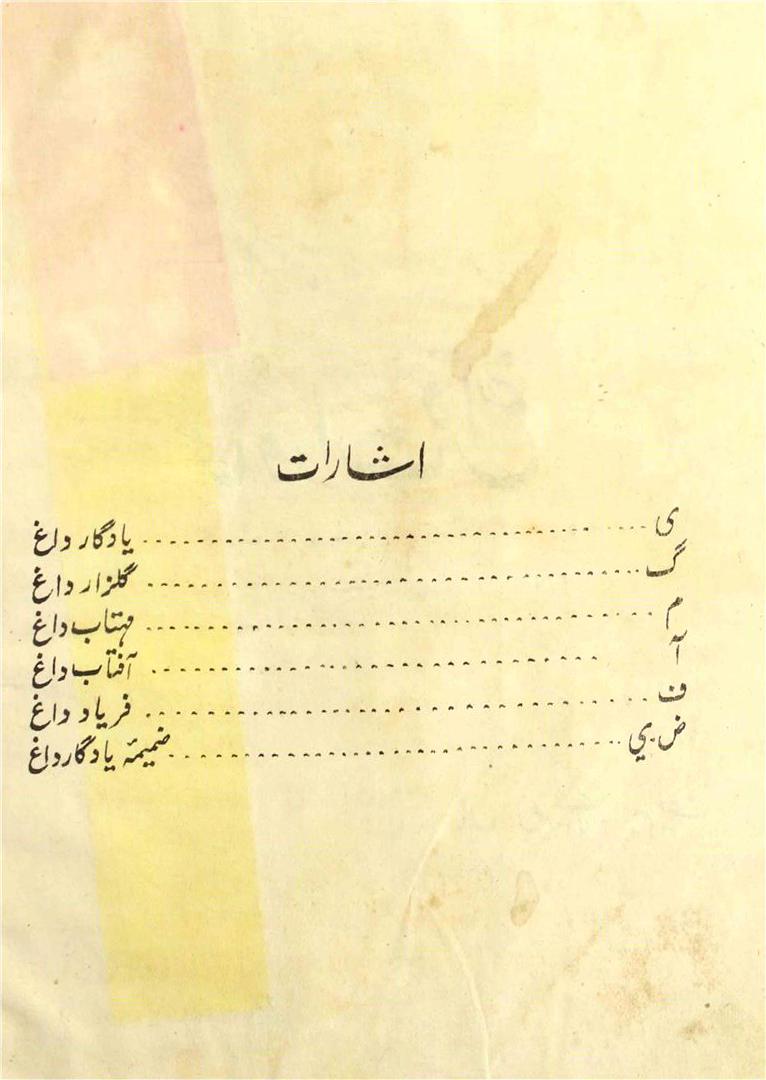 اشارات
ی .... یادگار داغ
گ .... گلزار داغ
م .... مہتاب داغ
آ .... آفتاب داغ
ف .... فریاد داغ
ض-ی .... ضمیمۂ یادگار داغ